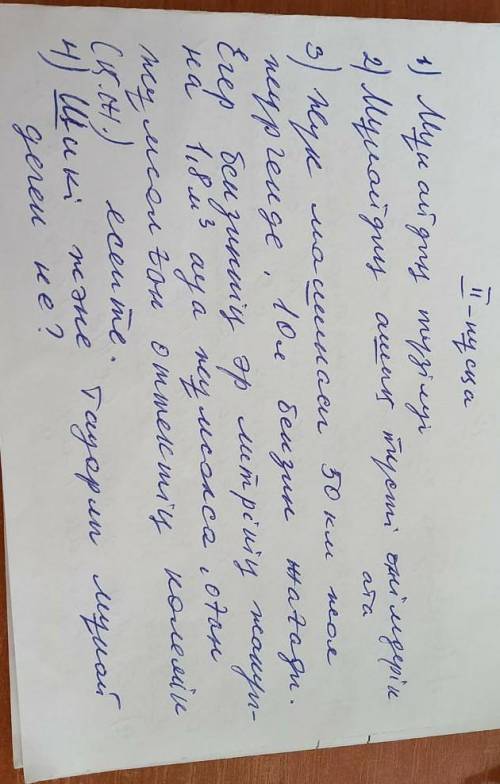 II-нұсқа
1) Мұнайдың түзілуі
2) Мұнайдың ашық түсті өнімдерін
ата
3) Жүк машинасы 50 км жол
жүргенде, 10л бензин жағады.
Егер бензиннің әр литрінің жануы-
на 1,8м³ ауа жұмсалса, оған
жұмсалған оттектің көлемін
(қ.ж.) есепте.
4) Шикі және тауарлы мұнай
деген не?